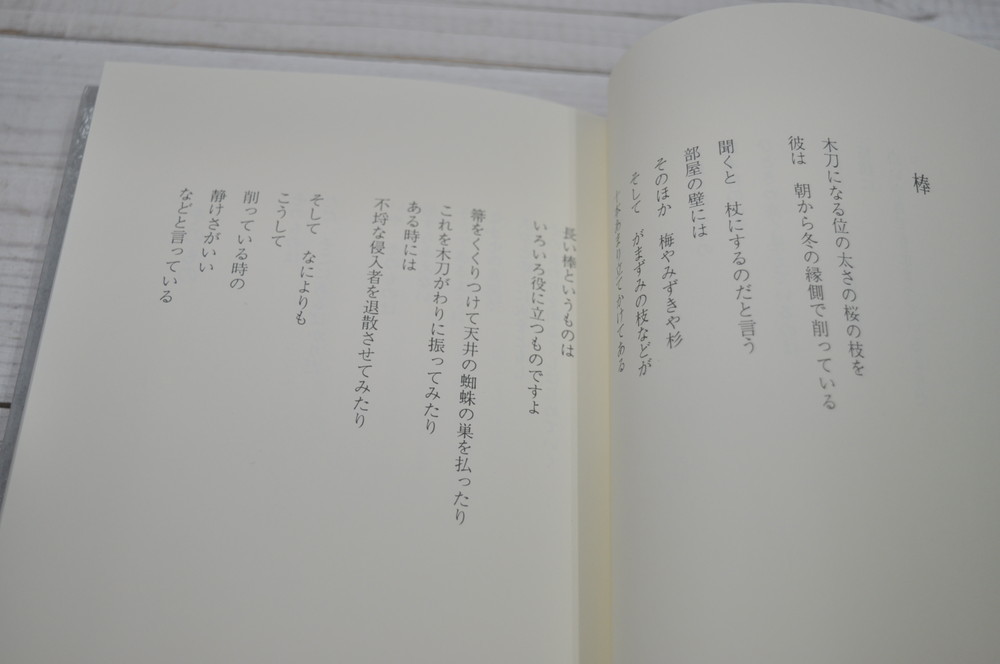 棒
木刀になる位の太さの桜の枝を
彼は　朝から冬の縁側で削っている
聞くと　杖にするのだと言う
部屋の壁には
そのほか　梅やみずきや杉
そして　がまずみの枝などが
立てかけてある
長い棒というものは
いろいろ役に立つものですよ
箒をくくりつけて天井の蜘蛛の巣を払ったり
これを木刀がわりに振ってみたり
ある時には
不埒な侵入者を退散させてみたり
そして　なによりも
こうして
削っている時の
静けさがいい
などと言っている